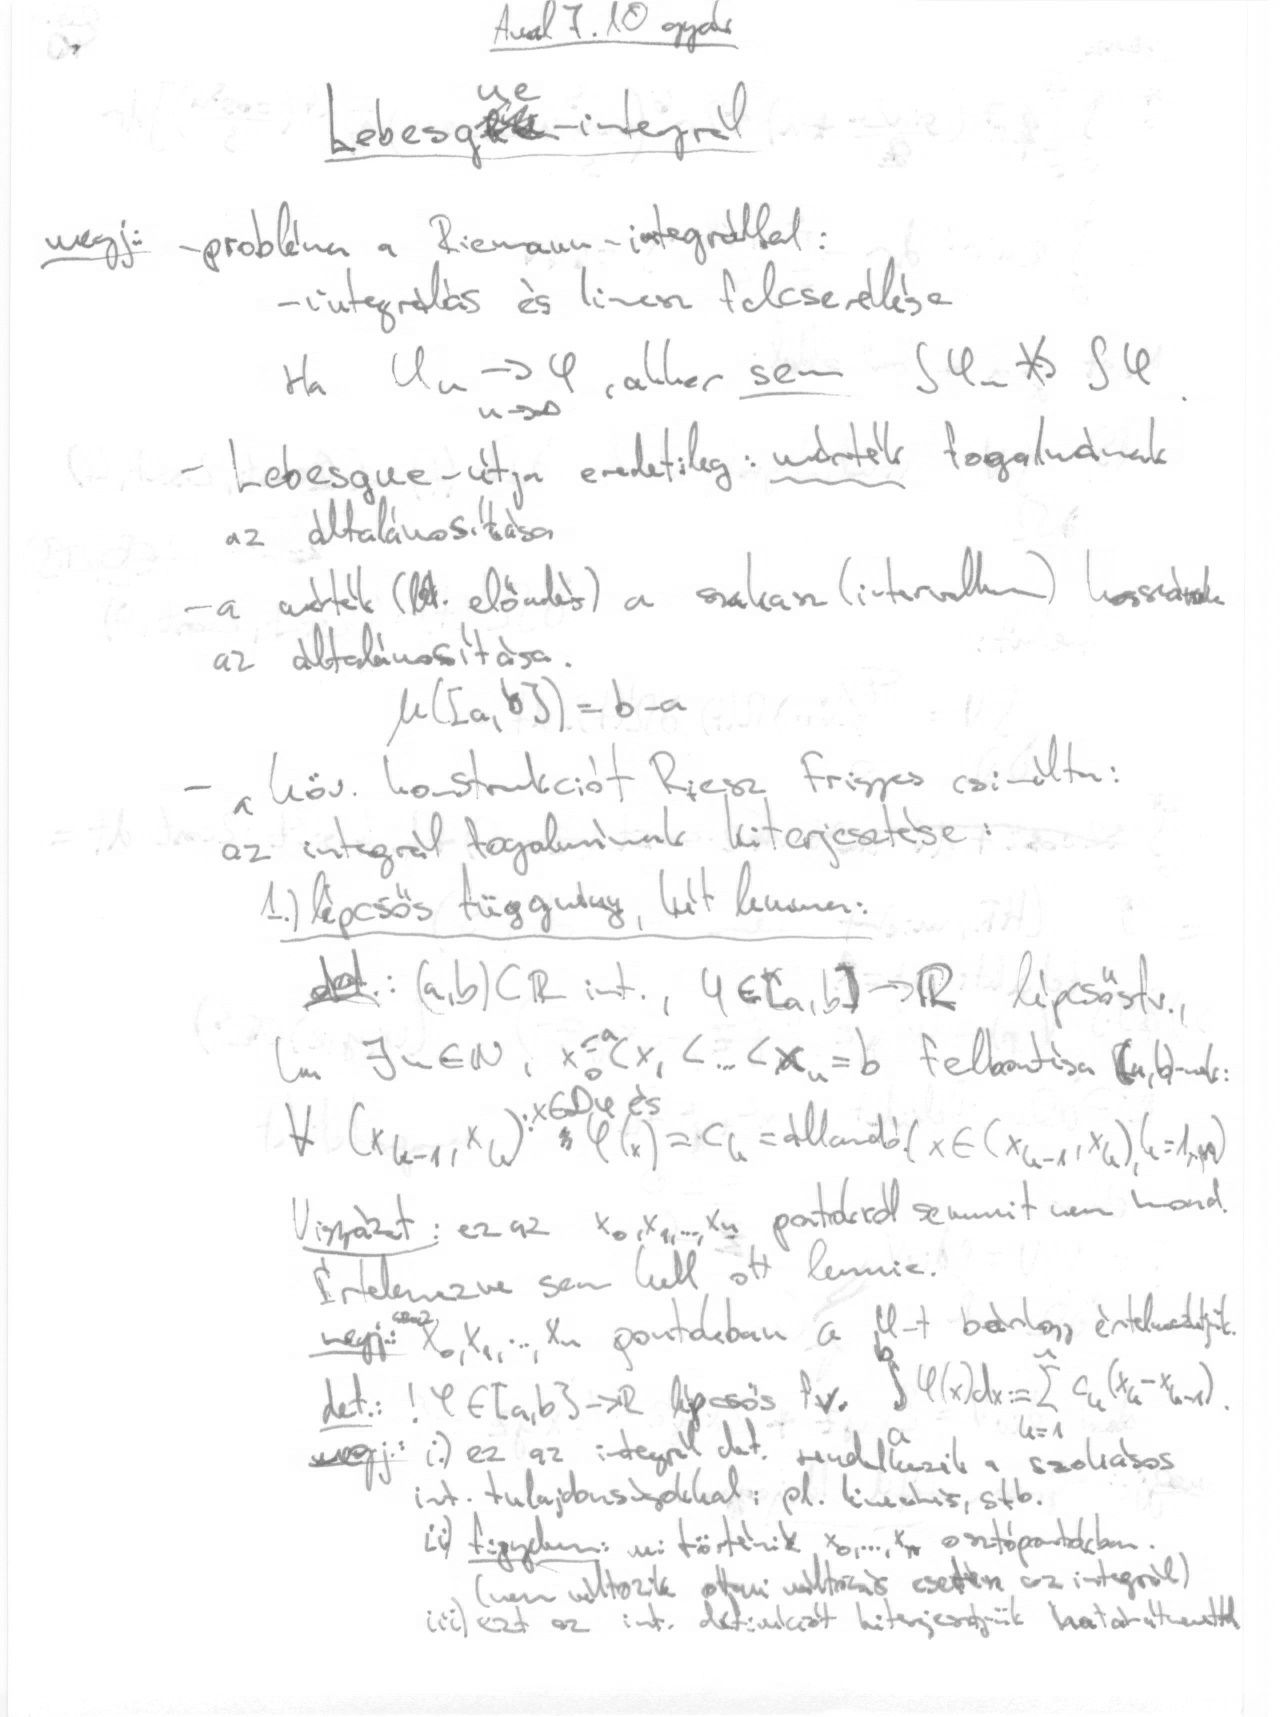 Anal 7. 10 gyak
Lebesgue-integrál
megj.: -probléma a Riemann-integrállal:
-integrálás és limesz felcserélése
Ha φₙ → φ, akkor sem ∫φₙ ↛ ∫φ.
n→∞
- Lebesgue-útja eredetileg: mérték fogalmának
az általánosítása
- a mérték (ld. előadás) a szakasz (intervallum) hosszának
az általánosítása.
μ([a,b]) = b-a
- a köv. konstrukciót Riesz Frigyes csinálta:
az integrál fogalmának kiterjesztése:
1.) lépcsős függvény, két lemma:
def.: (a,b)⊂ℝ int., φ∈[a,b]→ℝ lépcsősfv.,
ha ∃n∈ℕ, x₀=a<x₁<...<xₙ=b felbontása [a,b]-nek:
∀ (xₖ₋₁, xₖ): x∈Dφ és φ(x) = cₖ = állandó. (x∈(xₖ₋₁,xₖ), k=1,..,n)
Vigyázat: ez az x₀,x₁,...,xₙ pontokról semmit nem mond.
Értelmezve sem kell ott lennie.
megj.: x₀,x₁,...,xₙ pontokban a φ-t bárhogy értelmezhetjük.
def.: ! φ∈[a,b]→ℝ lépcsős fv. ∫ₐᵇ φ(x)dx := Σₖ₌₁ⁿ cₖ(xₖ-xₖ₋₁).
megj.: i.) ez az integrál def. rendelkezik a szokásos
int. tulajdonságokkal: pl. linearitás, stb.
ii) figyelem: mi történik x₀,...,xₙ osztópontokban.
(nem változik ottani változás esetén az integrál)
iii) ezt az int. definíciót kiterjesztjük határátmenettel